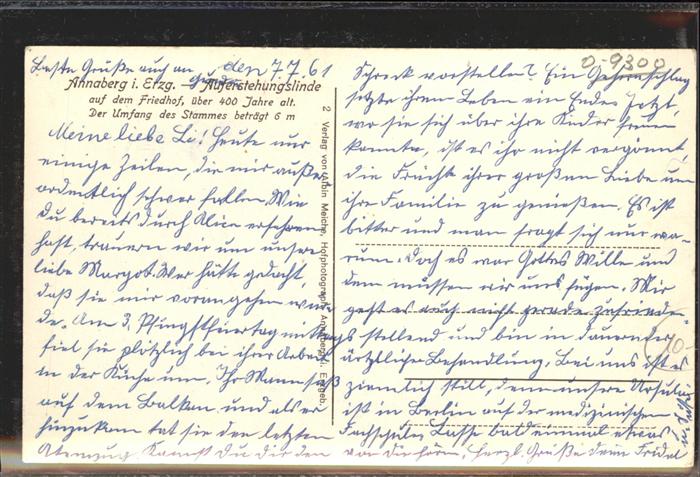 Beste Grüße auch an
den 7.7.61
Annaberg i. Erzg. Auferstehungslinde
auf dem Friedhof, über 400 Jahre alt.
Der Umfang des Stammes beträgt 6 m
Meine liebe Li! Heute nur
einige Zeilen, die mir außer-
ordentlich schwer fallen. Wie
Du bereits durch Alice erfahren
hast, trauern wir um unsere
liebe Margot. Wer hätte gedacht,
daß sie mir vorangehen wür-
de. Am 3. Pfingstfeiertag mittags
fiel sie plötzlich bei ihrer Arbeit
in der Küche um. Ihr Mann saß
auf dem Balkon und als er
hinzukam tat sie den letzten
Atemzug. Kannst Du dir den
2 Verlag von Albin Meiche, Hofphotograph, Annaberg i. Erzgeb.
0-9300
Schreck vorstellen? Ein Gehirnschlag
setzte ihrem Leben ein Ende. Jetzt,
wo sie sich über ihre Kinder freuen
konnte, ist es ihr nicht vergönnt,
die Früchte ihrer großen Liebe um
ihre Familie zu genießen. Es ist
bitter und man fragt sich nur wa-
rum. Doch es war Gottes Wille und
dem müssen wir uns fügen. Mir
geht es auch nicht gerade zufrieden-
stellend und bin in dauernder
ärztlicher Behandlung. Bei uns ist es
ziemlich still, denn unsere Ursula
ist in Berlin auf der medizinischen
Fachschule. Lasse bald einmal etwas
von Dir hören. Herzl. Grüße Deine Friedel